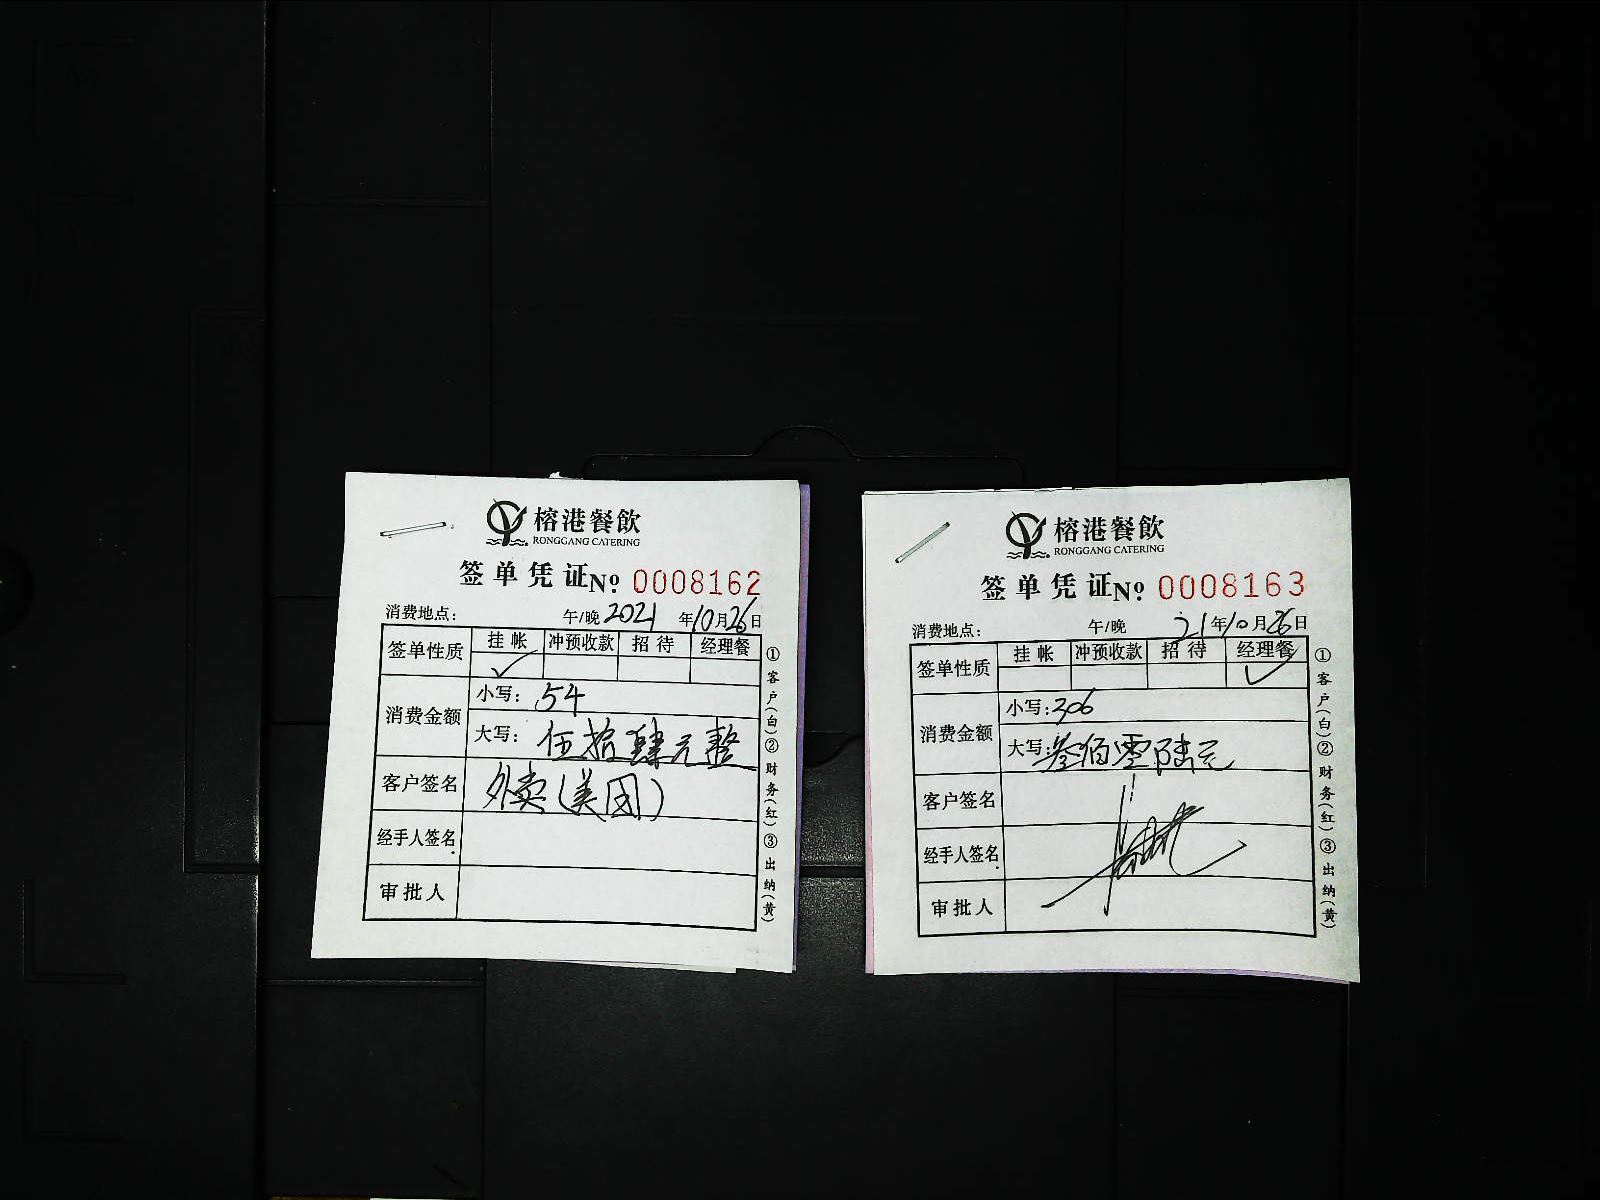 榕港餐飲
RONGGANG CATERING
签单凭证 № 0008162
消费地点： 午/晚 2021 年 10 月 26 日
签单性质 挂帐 冲预收款 招待 经理餐
✓
消费金额 小写：54
大写：伍拾肆元整
客户签名 外卖（美团）
经手人签名
审批人
①客户(白)②财务(红)③出纳(黄)
榕港餐飲
RONGGANG CATERING
签单凭证 № 0008163
消费地点： 午/晚 21 年 10 月 26 日
签单性质 挂帐 冲预收款 招待 经理餐
✓
消费金额 小写：306
大写：叁佰零陆元
客户签名
经手人签名
审批人
①客户(白)②财务(红)③出纳(黄)